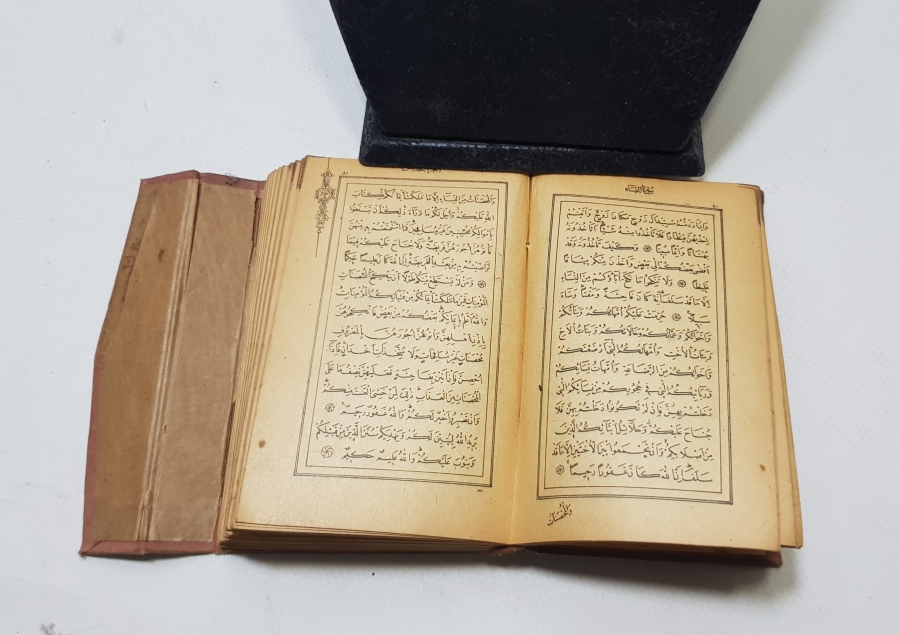 سُورَةُ النِّسَاءِ
٨٠
وَاِنْ اَرَدْتُمُ اسْتِبْدَالَ زَوْجٍ مَكَانَ زَوْجٍ وَاٰتَيْتُمْ
اِحْدٰيهُنَّ قِنْطَارًا فَلَا تَأْخُذُوا مِنْهُ شَيْـًٔا اَتَأْخُذُونَهُ
بُهْتَانًا وَاِثْمًا مُبِينًا ۞ وَكَيْفَ تَأْخُذُونَهُ وَقَدْ
اَفْضٰى بَعْضُكُمْ اِلٰى بَعْضٍ وَاَخَذْنَ مِنْكُمْ مِيثَاقًا
غَلِيظًا ۞ وَلَا تَنْكِحُوا مَا نَكَحَ اٰبَاؤُكُمْ مِنَ النِّسَاءِ
اِلَّا مَا قَدْ سَلَفَ اِنَّهُ كَانَ فَاحِشَةً وَمَقْتًا وَسَاءَ
سَبِيلًا ۞ حُرِّمَتْ عَلَيْكُمْ اُمَّهَاتُكُمْ وَبَنَاتُكُمْ
وَاَخَوَاتُكُمْ وَعَمَّاتُكُمْ وَخَالَاتُكُمْ وَبَنَاتُ الْاَخِ
وَبَنَاتُ الْاُخْتِ وَاُمَّهَاتُكُمُ الّٰتِي اَرْضَعْنَكُمْ
وَاَخَوَاتُكُمْ مِنَ الرَّضَاعَةِ وَاُمَّهَاتُ نِسَائِكُمْ
وَرَبَائِبُكُمُ الّٰتِي فِي حُجُورِكُمْ مِنْ نِسَائِكُمُ الّٰتِي
دَخَلْتُمْ بِهِنَّ فَاِنْ لَمْ تَكُونُوا دَخَلْتُمْ بِهِنَّ فَلَا
جُنَاحَ عَلَيْكُمْ وَحَلَائِلُ اَبْنَائِكُمُ الَّذِينَ
مِنْ اَصْلَابِكُمْ وَاَنْ تَجْمَعُوا بَيْنَ الْاُخْتَيْنِ اِلَّا مَا قَدْ
سَلَفَ اِنَّ اللّٰهَ كَانَ غَفُورًا رَحِيمًا ۞
وَالْمُحْصَنَاتُ
٨١
وَالْمُحْصَنَاتُ مِنَ النِّسَاءِ اِلَّا مَا مَلَكَتْ اَيْمَانُكُمْ كِتَابَ
اللّٰهِ عَلَيْكُمْ وَاُحِلَّ لَكُمْ مَا وَرَاءَ ذٰلِكُمْ اَنْ تَبْتَغُوا
بِاَمْوَالِكُمْ مُحْصِنِينَ غَيْرَ مُسَافِحِينَ فَمَا اسْتَمْتَعْتُمْ بِهِ مِنْهُنَّ
فَاٰتُوهُنَّ اُجُورَهُنَّ فَرِيضَةً وَلَا جُنَاحَ عَلَيْكُمْ فِيمَا
تَرَاضَيْتُمْ بِهِ مِنْ بَعْدِ الْفَرِيضَةِ اِنَّ اللّٰهَ كَانَ عَلِيمًا حَكِيمًا
۞ وَمَنْ لَمْ يَسْتَطِعْ مِنْكُمْ طَوْلًا اَنْ يَنْكِحَ الْمُحْصَنَاتِ
الْمُؤْمِنَاتِ فَمِنْ مَا مَلَكَتْ اَيْمَانُكُمْ مِنْ فَتَيَاتِكُمُ الْمُؤْمِنَاتِ
وَاللّٰهُ اَعْلَمُ بِاِيمَانِكُمْ بَعْضُكُمْ مِنْ بَعْضٍ فَانْكِحُوهُنَّ
بِاِذْنِ اَهْلِهِنَّ وَاٰتُوهُنَّ اُجُورَهُنَّ بِالْمَعْرُوفِ
مُحْصَنَاتٍ غَيْرَ مُسَافِحَاتٍ وَلَا مُتَّخِذَاتِ اَخْدَانٍ فَاِذَا
اُحْصِنَّ فَاِنْ اَتَيْنَ بِفَاحِشَةٍ فَعَلَيْهِنَّ نِصْفُ مَا عَلَى
الْمُحْصَنَاتِ مِنَ الْعَذَابِ ذٰلِكَ لِمَنْ خَشِيَ الْعَنَتَ مِنْكُمْ
وَاَنْ تَصْبِرُوا خَيْرٌ لَكُمْ وَاللّٰهُ غَفُورٌ رَحِيمٌ ۞
يُرِيدُ اللّٰهُ لِيُبَيِّنَ لَكُمْ وَيَهْدِيَكُمْ سُنَنَ الَّذِينَ مِنْ قَبْلِكُمْ
وَيَتُوبَ عَلَيْكُمْ وَاللّٰهُ عَلِيمٌ حَكِيمٌ ۞